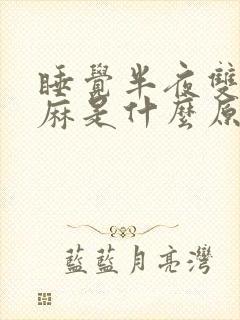 睡覺半夜雙
麻是什麼原
藍藍月亮灣